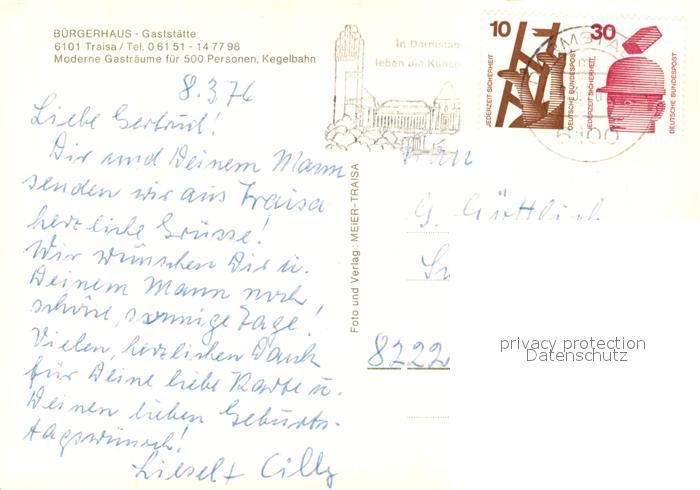 BÜRGERHAUS - Gaststätte
6101 Traisa / Tel. 0 61 51 - 14 77 98
Moderne Gasträume für 500 Personen, Kegelbahn
In Darmstadt
leben die Künste
10
JEDERZEIT SICHERHEIT
DEUTSCHE BUNDESPOST
30
JEDERZEIT SICHERHEIT
DEUTSCHE BUNDESPOST
8.3.76
Liebe Gertrud!
Dir und Deinem Mann
senden wir aus Traisa
herzliche Grüsse!
Wir wünschen Dir u.
Deinem Mann noch
schöne, sonnige Tage!
Vielen, herzlichen Dank
für Deine liebe Karte u.
Deinen lieben Geburts-
tagswunsch!
Liesel + Cilly
Foto und Verlag: MEIER-TRAISA
Frau
G. Güttlich
8222
privacy protection
Datenschutz